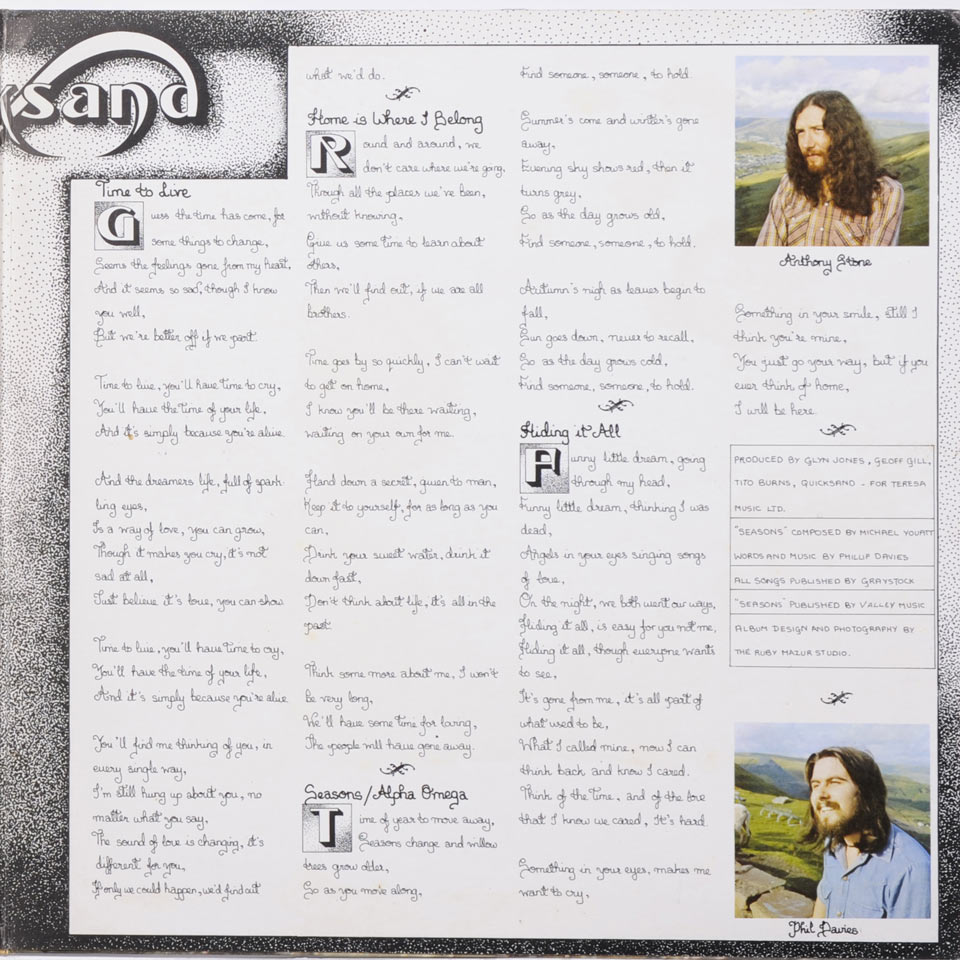 sand
Time to Live
Guess the time has come, for
some things to change,
Seems the feelings gone from my heart,
And it seems so sad, though I know
you well,
But we're better off if we part.
Time to live, you'll have time to cry,
You'll have the time of your life,
And it's simply because you're alive.
And the dreamers life, full of spark-
ling eyes,
Is a way of love, you can grow,
Though it makes you cry, it's not
sad at all,
Just believe it's love, you can show.
Time to live, you'll have time to cry,
You'll have the time of your life,
And it's simply because you're alive
You'll find me thinking of you, in
every single way,
I'm still hung up about you, no
matter what you say,
The sound of love is changing, it's
different for you,
If only we could happen, we'd find out
what we'd do.
Home is Where I Belong
Round and around, we
don't care where we're going,
Through all the places we've been,
without knowing,
Give us some time to learn about
others,
Then we'll find out, if we are all
brothers.
Time goes by so quickly, I can't wait
to get on home,
I know you'll be there waiting,
waiting on your own for me.
Hand down a secret, given to man,
Keep it to yourself, for as long as you
can,
Drink your sweet water, drink it
down fast,
Don't think about life, it's all in the
past
Think some more about me, I won't
be very long,
We'll have some time for loving,
The people will have gone away.
Seasons/Alpha Omega
Time of year to move away,
Seasons change and willow
trees grow older,
So as you move along,
Find someone, someone, to hold.
Summer's come and winter's gone
away,
Evening sky shows red, then it
turns grey,
So as the day grows old,
Find someone, someone, to hold.
Autumn's nigh as leaves begin to
fall,
Sun goes down, never to recall,
So as the day grows cold,
Find someone, someone, to hold.
Hiding it All
Funny little dream, going
through my head,
Funny little dream, thinking I was
dead,
Angels in your eyes singing songs
of love,
On the night, we both went our ways,
Hiding it all, is easy for you not me,
Hiding it all, though everyone wants
to see,
It's gone from me, it's all part of
what used to be,
What I called mine, now I can
think back and know I cared.
Think of the time, and of the love
that I know we cared, It's hard.
Something in your eyes, makes me
want to cry,
Anthony Stone
Something in your smile, still I
think you're mine,
You just go your way, but if you
ever think of home,
I will be here.
PRODUCED BY GLYN JONES, GEOFF GILL,
TITO BURNS, QUICKSAND - FOR TERESA
MUSIC LTD.
"SEASONS" COMPOSED BY MICHAEL YOUATT
WORDS AND MUSIC BY PHILLIP DAVIES
ALL SONGS PUBLISHED BY GRAYSTOCK
"SEASONS" PUBLISHED BY VALLEY MUSIC
ALBUM DESIGN AND PHOTOGRAPHY BY
THE RUBY MAZUR STUDIO.
Phil Davies